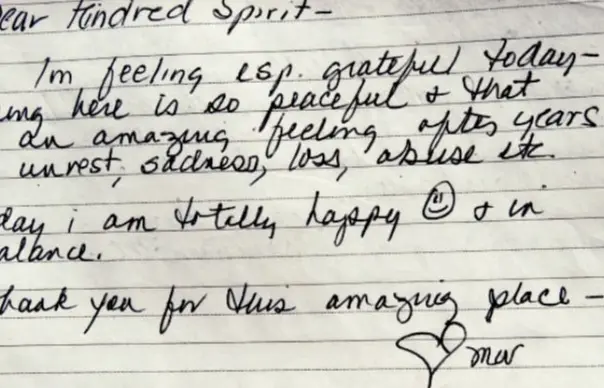 ear Kindred Spirit-
Im feeling esp. grateful today-
ing here is so peaceful & that
an amazing feeling after years
unrest, sadness, loss, abuse etc.
day i am totally happy ☺ & in
alance.
hank you for this amazing place -